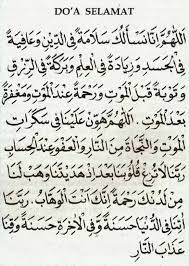 DO'A SELAMAT
اَللّٰهُمَّ اِنَّا نَسْأَلُكَ سَلَامَةً فِى الدِّيْنِ وَعَافِيَةً
فِى الْجَسَدِ وَزِيَادَةً فِى الْعِلْمِ وَبَرَكَةً فِى الرِّزْقِ
وَتَوْبَةً قَبْلَ الْمَوْتِ وَرَحْمَةً عِنْدَ الْمَوْتِ وَمَغْفِرَةً
بَعْدَ الْمَوْتِ. اَللّٰهُمَّ هَوِّنْ عَلَيْنَا فِى سَكَرَاتِ
الْمَوْتِ وَالنَّجَاةَ مِنَ النَّارِ وَالْعَفْوَ عِنْدَ الْحِسَابِ
رَبَّنَا لَا تُزِغْ قُلُوْبَنَا بَعْدَ اِذْ هَدَيْتَنَا وَهَبْ لَنَا
مِنْ لَدُنْكَ رَحْمَةً اِنَّكَ اَنْتَ الْوَهَّابُ. رَبَّنَا
اٰتِنَا فِى الدُّنْيَا حَسَنَةً وَفِى الْاٰخِرَةِ حَسَنَةً وَقِنَا
عَذَابَ النَّارِ